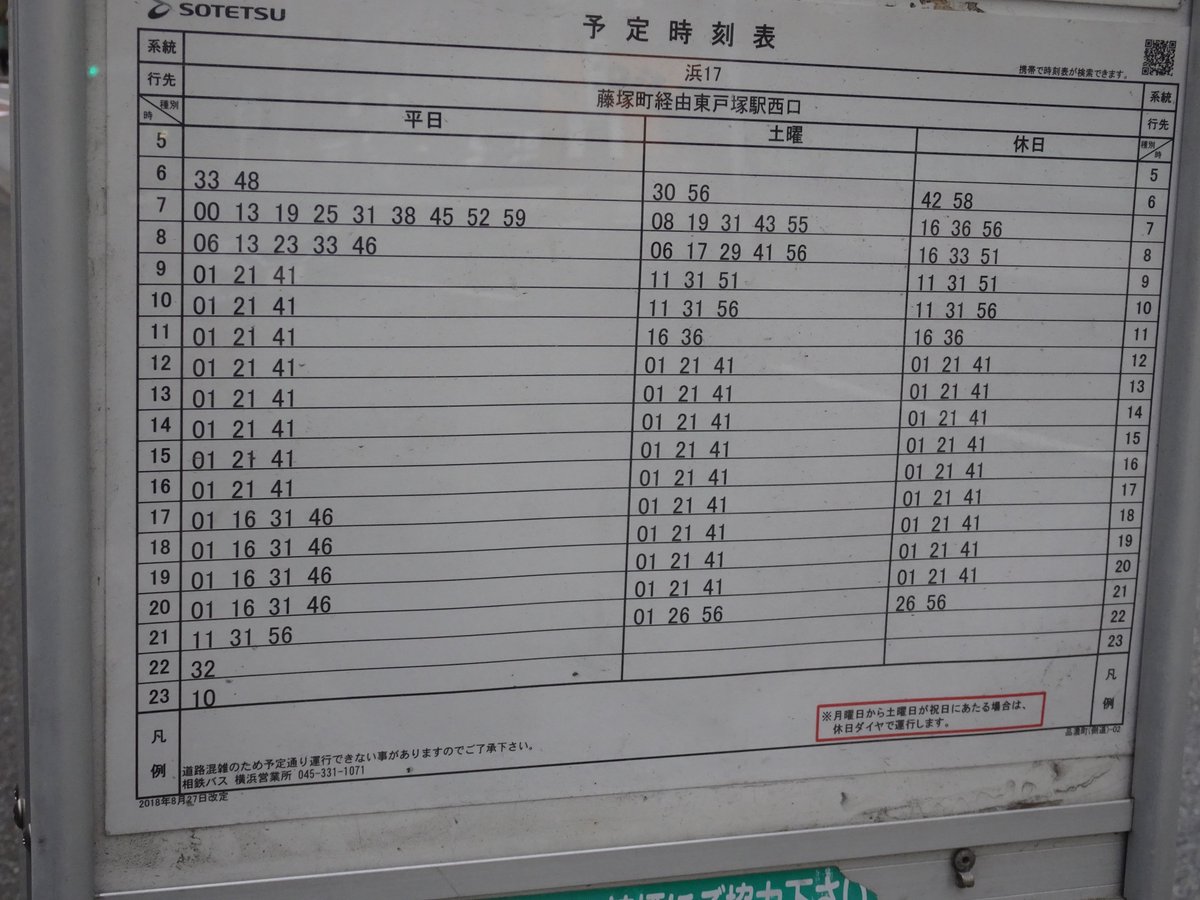 SOTETSU
予定時刻表
携帯で時刻表が検索できます。
系統 浜17 系統
行先 藤塚町経由東戸塚駅西口 行先
種別 時 平日 土曜 休日 種別 時
5 5
6 33 48 30 56 42 58 6
7 00 13 19 25 31 38 45 52 59 08 19 31 43 55 16 36 56 7
8 06 13 23 33 46 06 17 29 41 56 16 33 51 8
9 01 21 41 11 31 51 11 31 51 9
10 01 21 41 11 31 56 11 31 56 10
11 01 21 41 16 36 16 36 11
12 01 21 41 01 21 41 01 21 41 12
13 01 21 41 01 21 41 01 21 41 13
14 01 21 41 01 21 41 01 21 41 14
15 01 21 41 01 21 41 01 21 41 15
16 01 21 41 01 21 41 01 21 41 16
17 01 16 31 46 01 21 41 01 21 41 17
18 01 16 31 46 01 21 41 01 21 41 18
19 01 16 31 46 01 21 41 01 21 41 19
20 01 16 31 46 01 21 41 01 21 41 20
21 11 31 56 01 26 56 26 56 21
22 32 22
23 10 23
凡例 凡例
※月曜日から土曜日が祝日にあたる場合は、
休日ダイヤで運行します。
道路混雑のため予定通り運行できない事がありますのでご了承下さい。
相鉄バス 横浜営業所 045-331-1071
品濃町(側道)-02
2018年8月27日改定
にご協力下さい